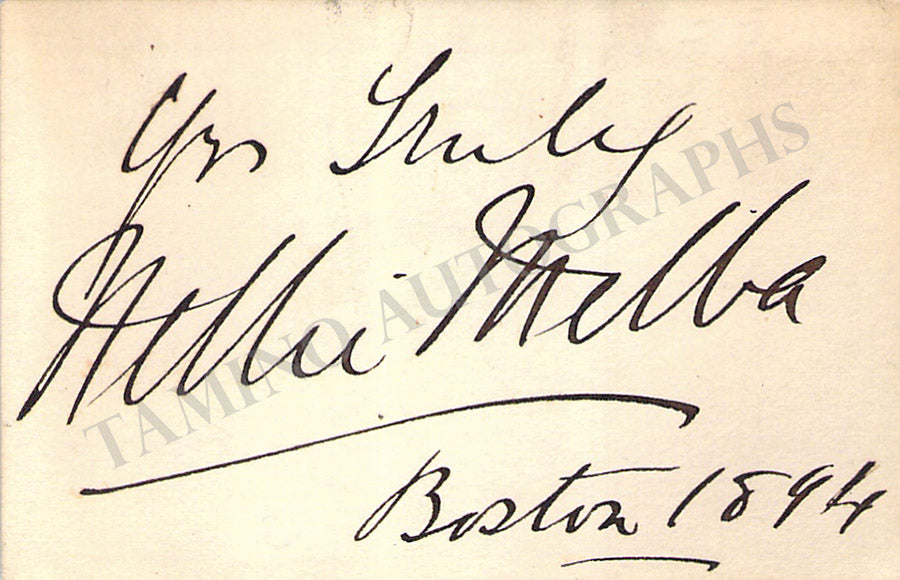 Yrs Truly
Nellie Melba
Boston 1894
TAMINO AUTOGRAPHS